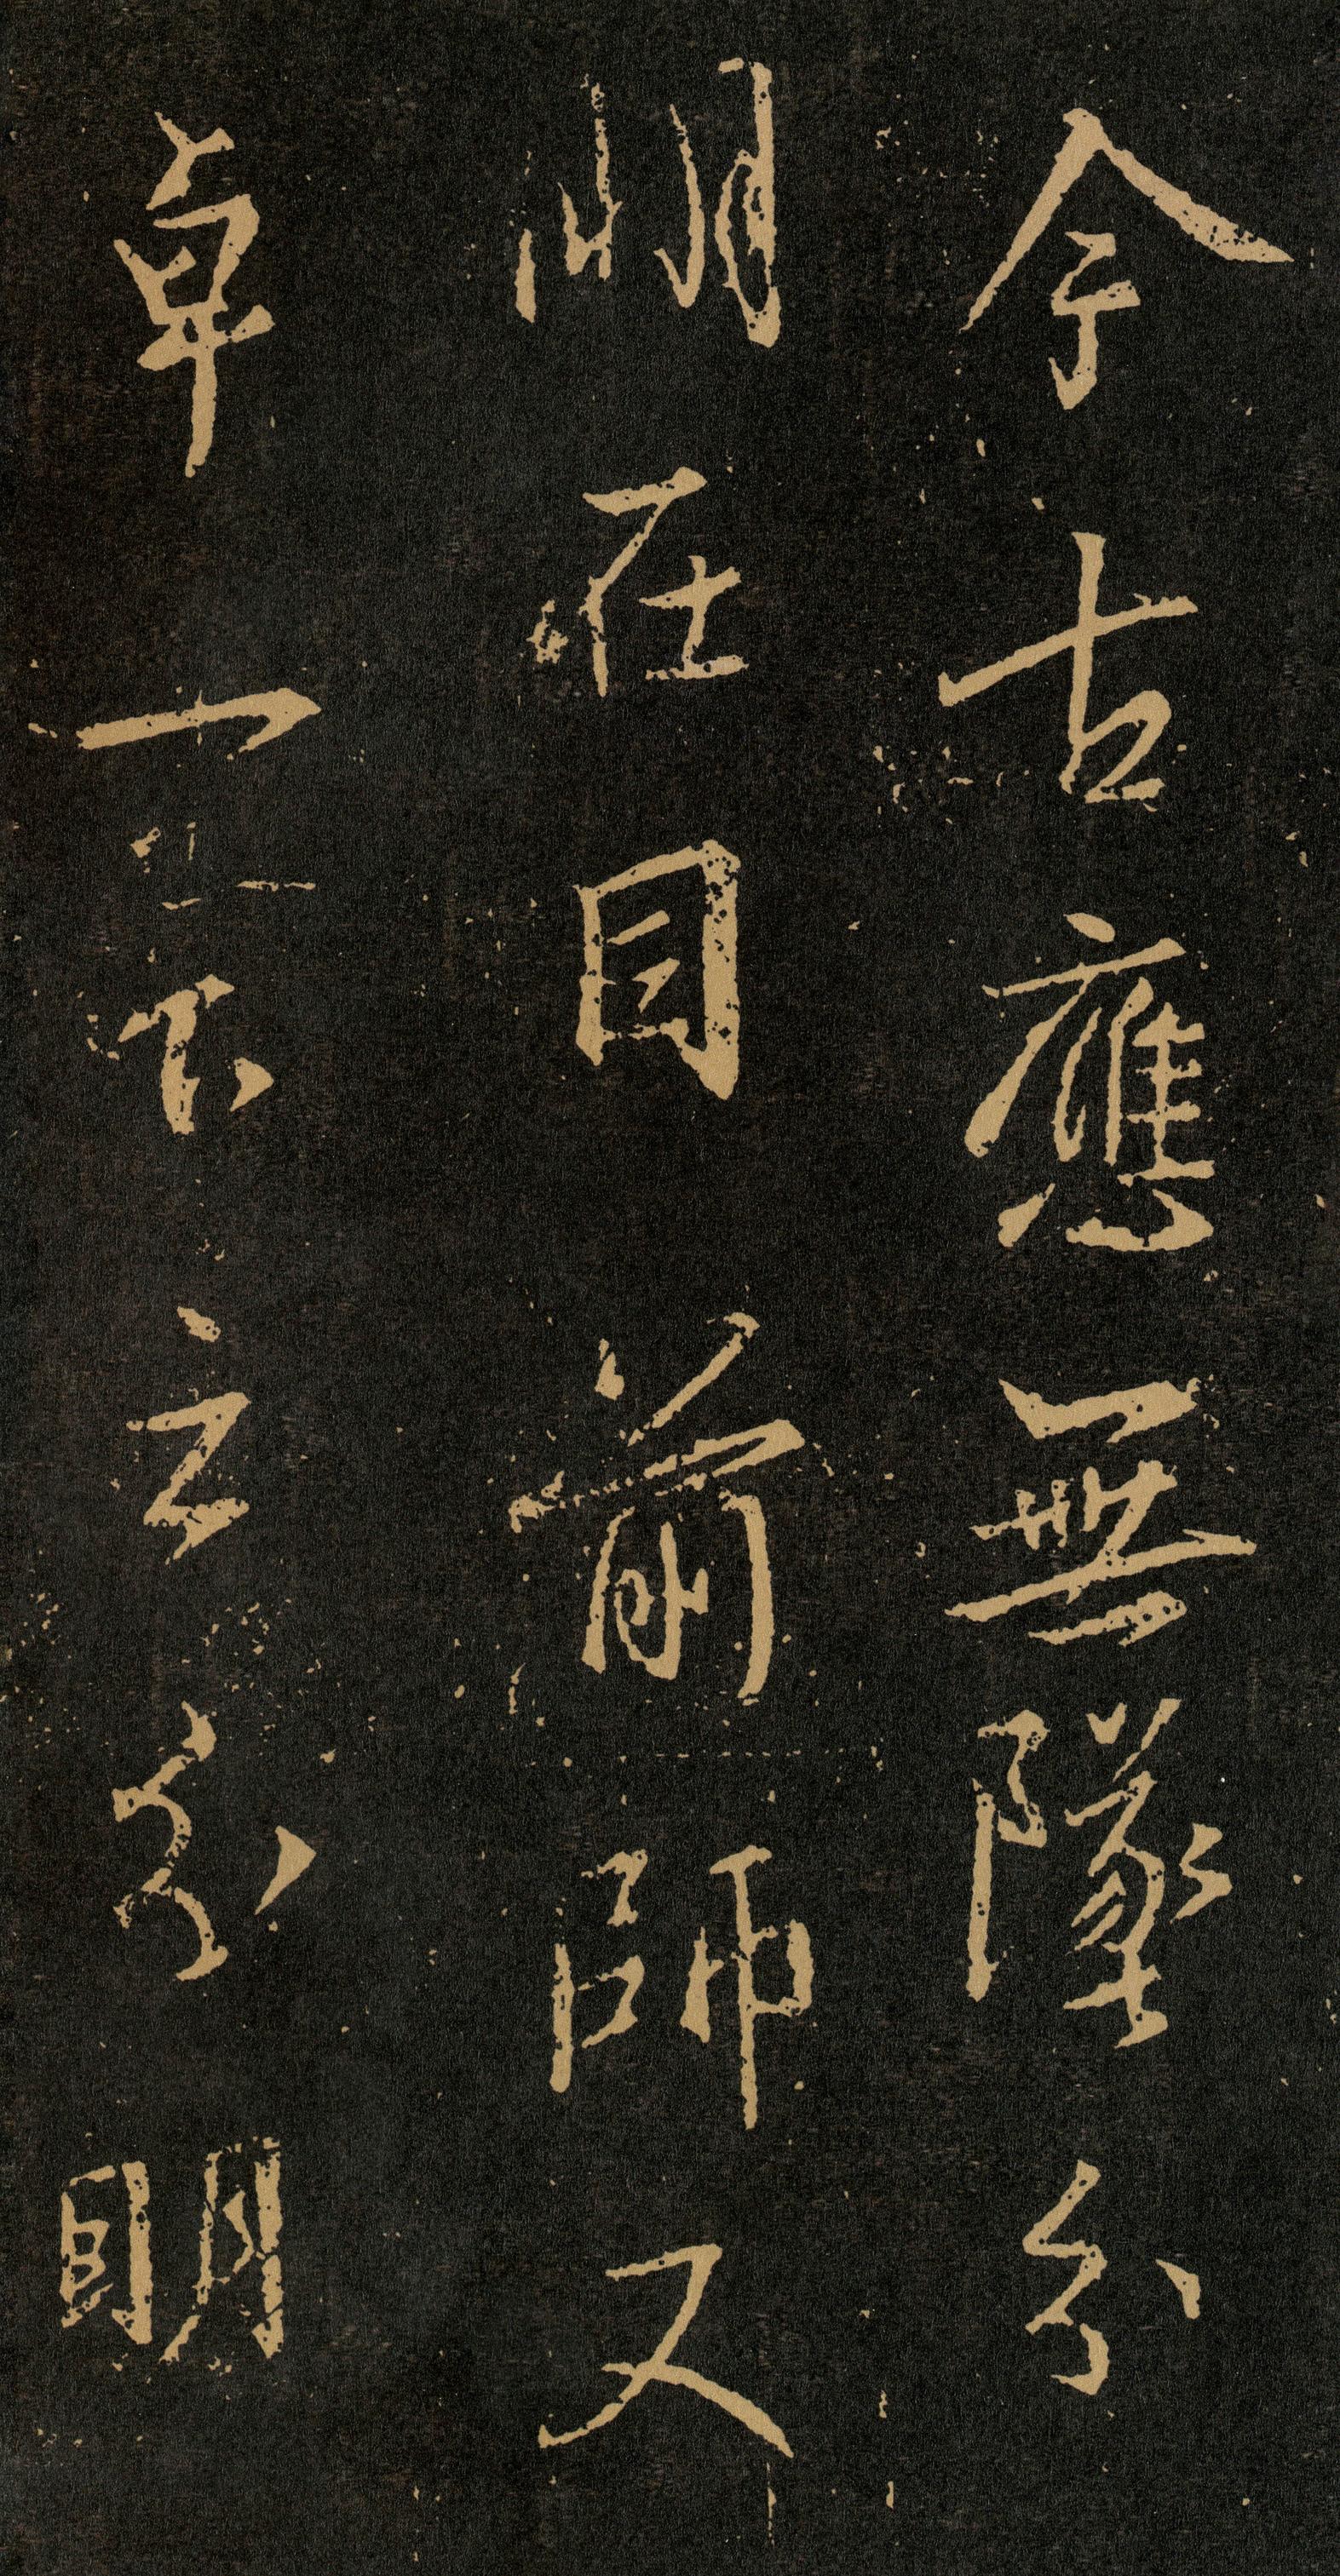 今古應無墜分
明在目前師又
卓一下云分明